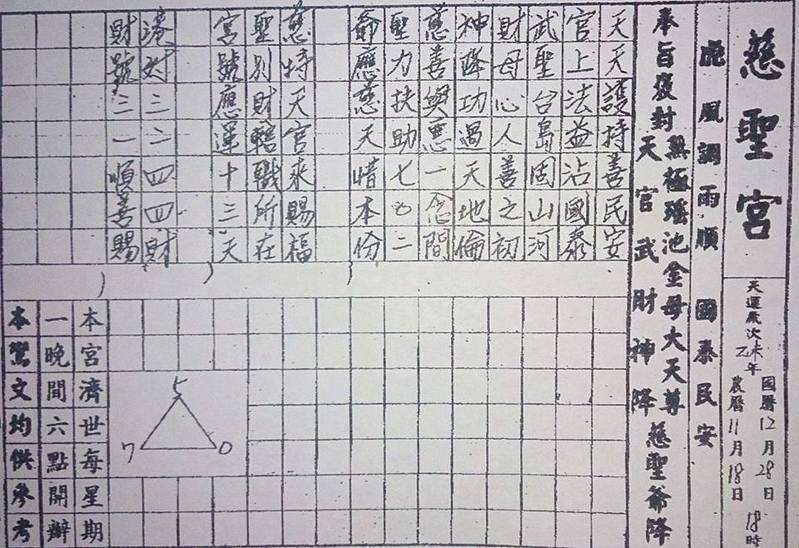 慈聖宮
天運歲次乙未年
國曆12月28日 18時
農曆11月18日
風調雨順 國泰民安
奉旨復封
無極瑤池金母大天尊 慈聖爺降
天官武財神降
天天護持善民安
官上法益沾國泰
武聖台島固山河
財母心人善之初
神降功過天地倫
慈善與惡一念間
聖力扶助七二
爺應慈天惜本份
慈特天官來賜福
聖別財轄職所在
宮號應運十三天
湊对三二四四財
財號三一順善賜
5
7 0
本宮濟世每星期
一晚間六點開辦
本鸞文均供參考